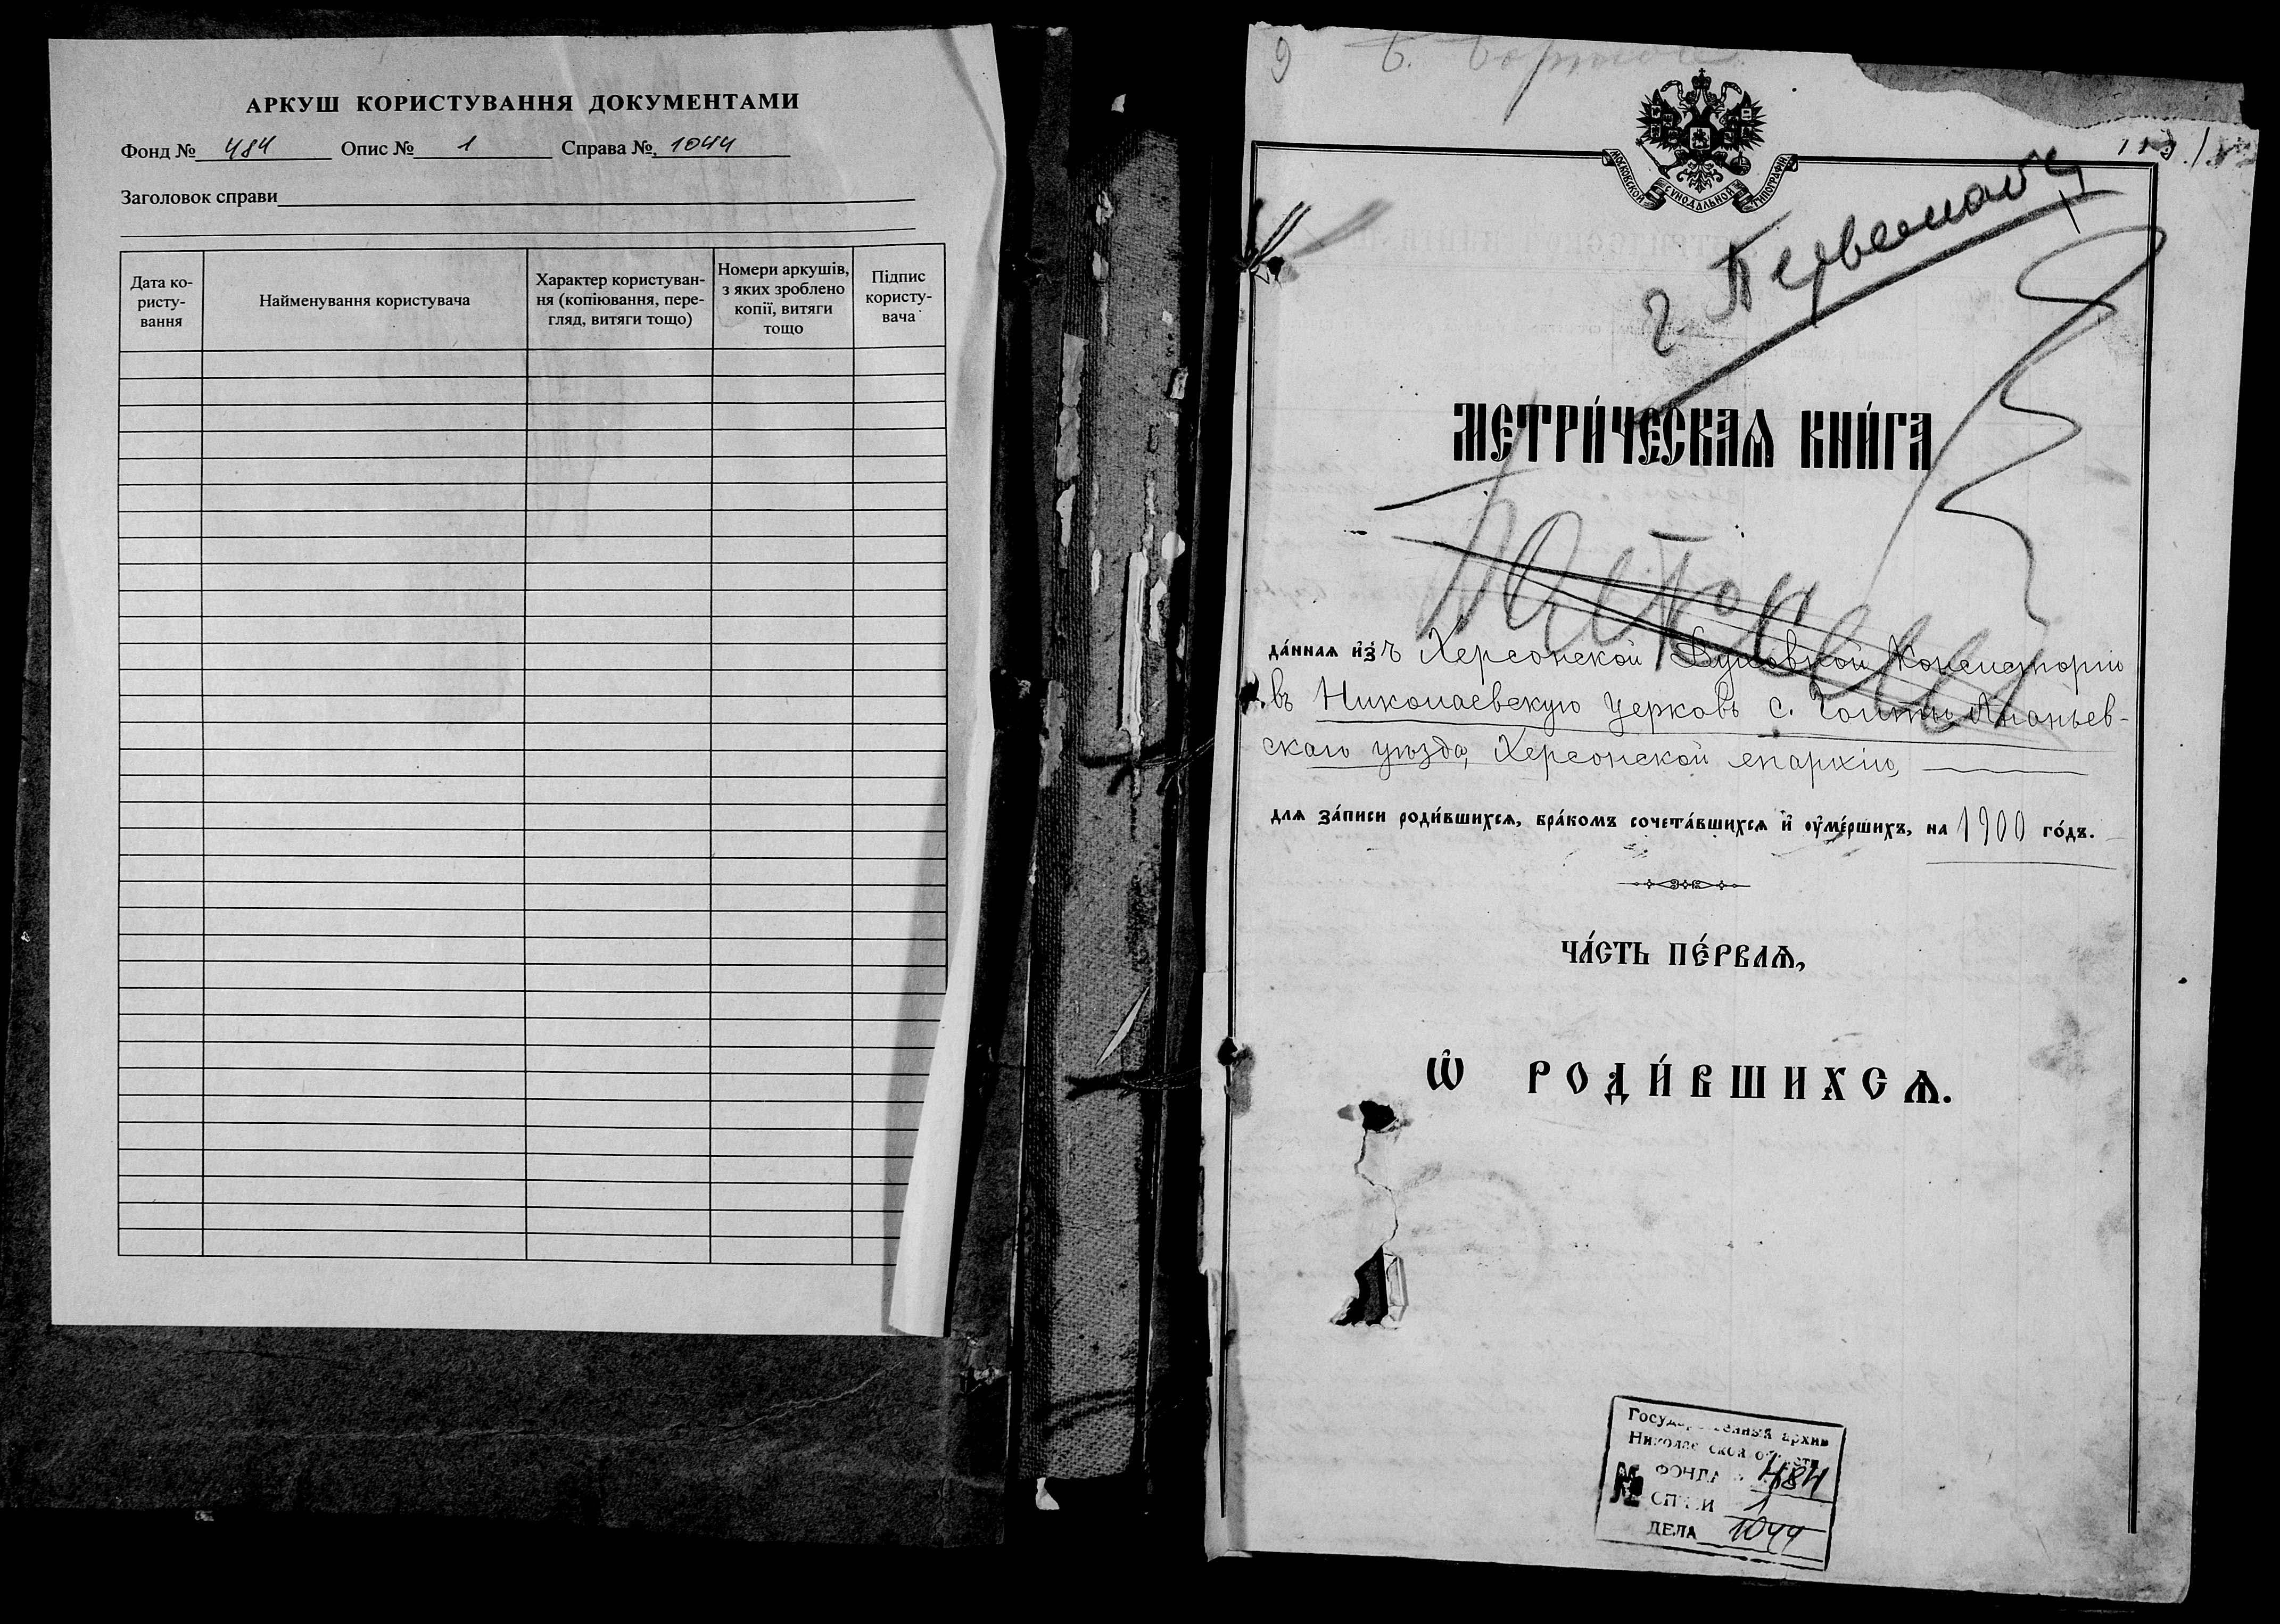 АРКУШ КОРИСТУВАННЯ ДОКУМЕНТАМИ
Фонд № 484 Опис № 1 Справа № 1044
Заголовок справи
Дата ко-
ристу-
вання
Найменування користувача
Характер користуван-
ня (копіювання, пере-
гляд, витяги тощо)
Номери аркушів,
з яких зроблено
копії, витяги
тощо
Підпис
користу-
вача
9
МОСКОВСКОЙ СѴНОДАЛЬНОЙ ТИПОГРАФІИ
г Первомайск
МЕТРИ́ЧЕСКАѦ КНИ́ГА
да́ннаѧ и҆зъ Херсонской Духовной Консисторіи
въ Николаевскую церковь с. Гольмы Ананьев-
скаго уѣзда, Херсонской епархіи,
для за́писи роди́вшихсѧ, бра́комъ сочета́вшихсѧ и҆ ᲂу҆ме́ршихъ, на 1900 го́дъ.
ЧА́СТЬ ПЕ́РВАѦ,
Ѽ РОДИ́ВШИХСѦ.
Государственный архив
Николаевской области
ФОНДА 484
№ ОПИСИ 1
ДЕЛА 1044